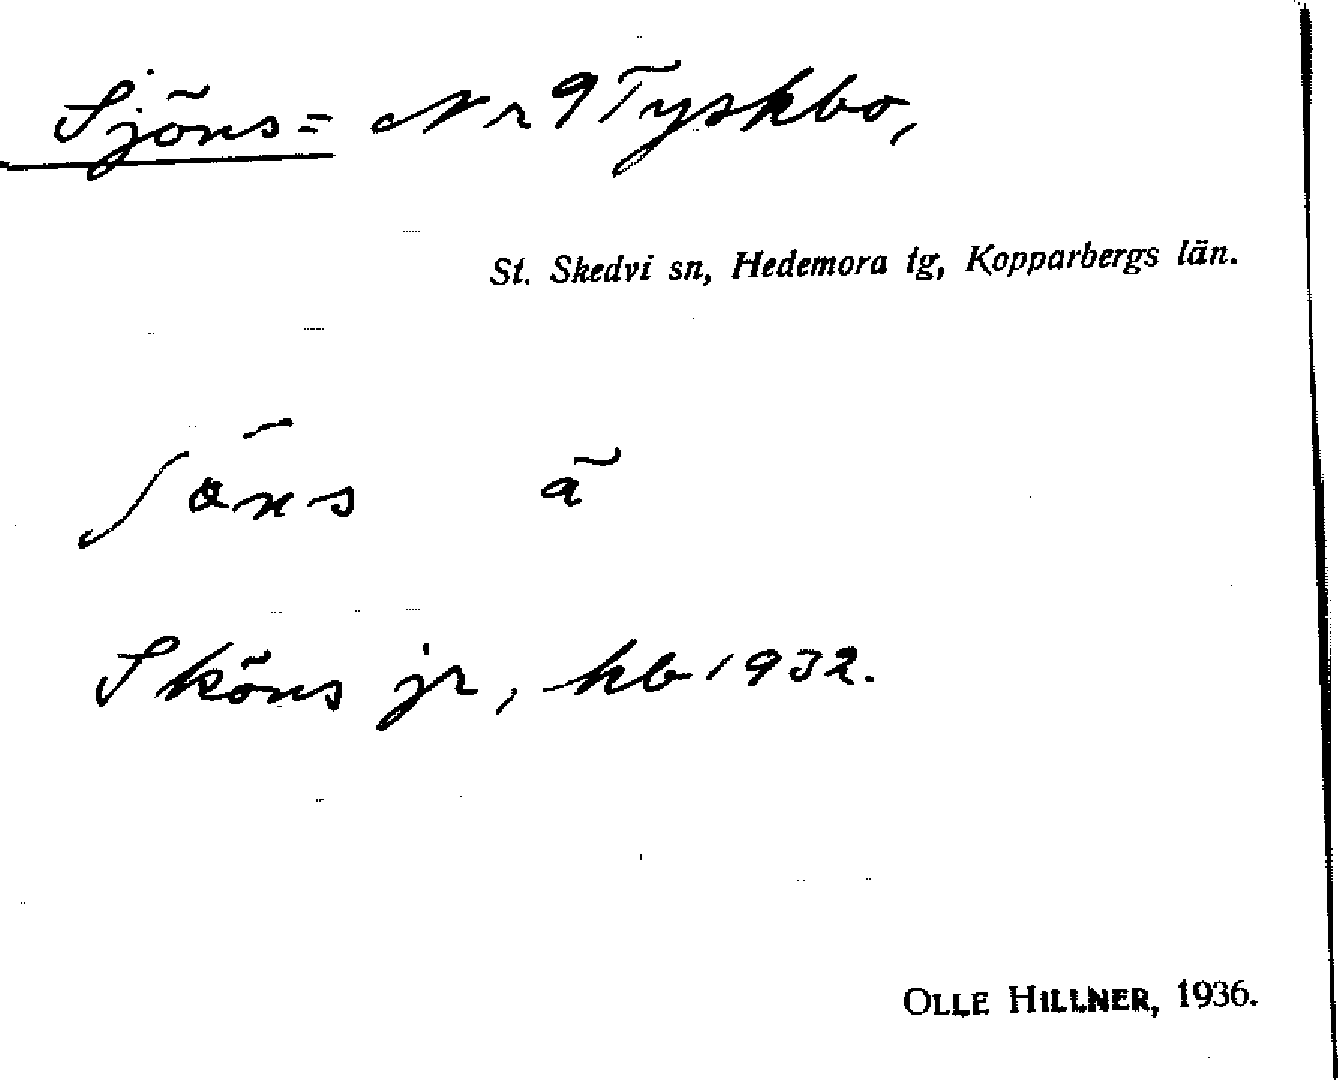 Sjöns= Nr 9 Tyskbo,
St. Skedvi sn, Hedemora tg, Kopparbergs län.
ʃöns ã
Sköns jr, kb 1932.
OLLE HILLNER, 1936.